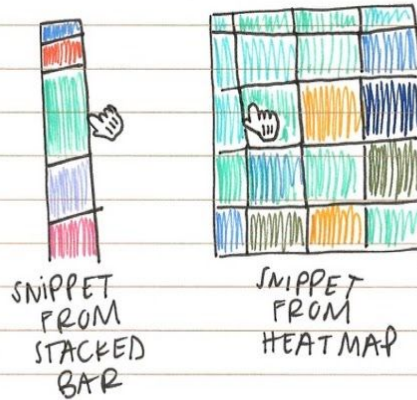 SNIPPET
FROM
STACKED
BAR
SNIPPET
FROM
HEATMAP